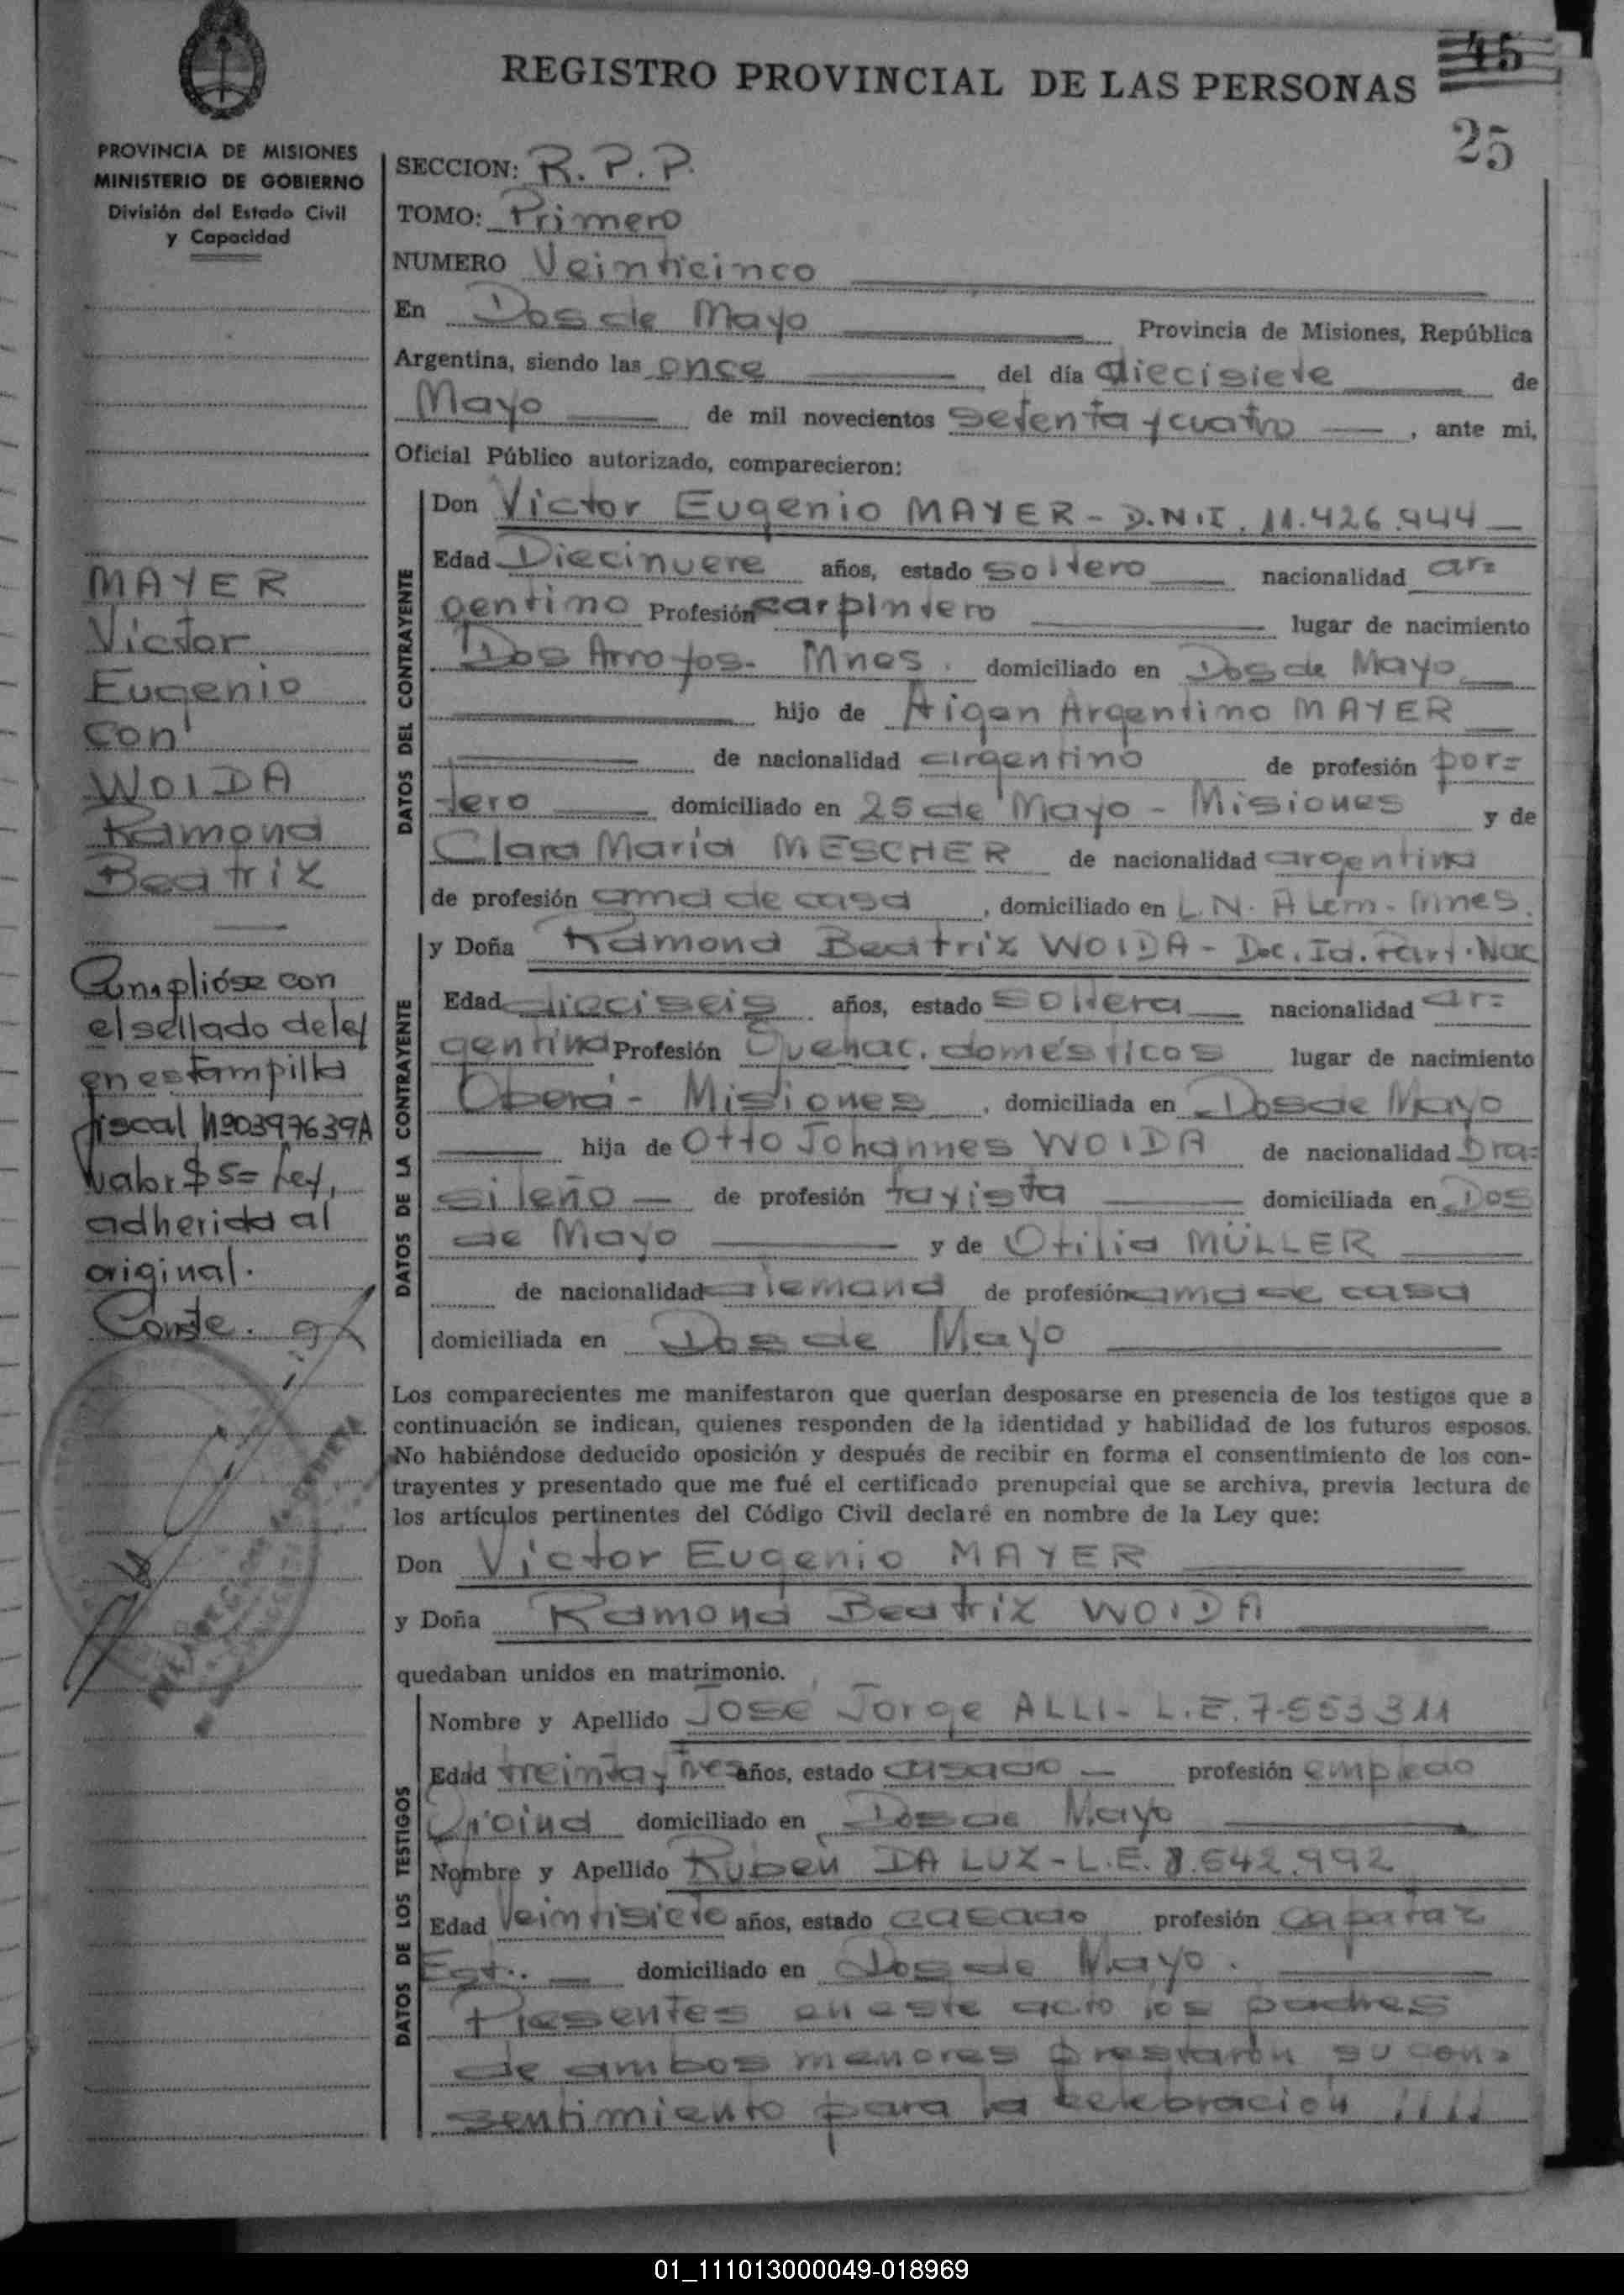 REGISTRO PROVINCIAL DE LAS PERSONAS
45
25
PROVINCIA DE MISIONES
MINISTERIO DE GOBIERNO
División del Estado Civil
y Capacidad
SECCION: R.P.P.
TOMO: Primero
NUMERO Veinticinco
En Dos de Mayo Provincia de Misiones, República
Argentina, siendo las once del día diecisiete de
Mayo de mil novecientos setenta y cuatro, ante mi,
Oficial Público autorizado, comparecieron:
DATOS DEL CONTRAYENTE
Don Victor Eugenio MAYER - D.N.I. 11.426.944
Edad Diecinueve años, estado soltero nacionalidad ar=
gentino Profesión carpintero lugar de nacimiento
Dos Arroyos. Mnes. domiciliado en Dos de Mayo
hijo de Aigan Argentino MAYER
de nacionalidad argentino de profesión por=
tero domiciliado en 25 de Mayo - Misiones y de
Clara María MESCHER de nacionalidad argentina
de profesión ama de casa, domiciliado en L.N. Alem - Mnes.
DATOS DE LA CONTRAYENTE
y Doña Ramona Beatriz WOIDA - Doc. Id. Part. Nac
Edad dieciseis años, estado soltera nacionalidad ar=
gentina Profesión Quehac. domésticos lugar de nacimiento
Oberá - Misiones, domiciliada en Dos de Mayo
hija de Otto Johannes WOIDA de nacionalidad bra=
sileño de profesión taxista domiciliada en Dos
de Mayo y de Otilia MÜLLER
de nacionalidad alemana de profesión ama de casa
domiciliada en Dos de Mayo
Los comparecientes me manifestaron que querían desposarse en presencia de los testigos que a
continuación se indican, quienes responden de la identidad y habilidad de los futuros esposos.
No habiéndose deducido oposición y después de recibir en forma el consentimiento de los con-
trayentes y presentado que me fué el certificado prenupcial que se archiva, previa lectura de
los artículos pertinentes del Código Civil declaré en nombre de la Ley que:
Don Victor Eugenio MAYER
y Doña Ramona Beatriz WOIDA
quedaban unidos en matrimonio.
DATOS DE LOS TESTIGOS
Nombre y Apellido José Jorge ALLI - L.E. 7.553.311
Edad treinta y tres años, estado casado profesión empleado
domiciliado en Dos de Mayo
Nombre y Apellido Ruben DA LUZ - L.E. 8.542.992
Edad Veintisiete años, estado casado profesión capataz
Est. domiciliado en Dos de Mayo.
Presentes en este acto los padres
de ambos menores prestaron su con=
sentimiento para la celebración
MAYER
Victor
Eugenio
con
WOIDA
Ramona
Beatriz
Cumplióse con
el sellado de ley
en estampilla
fiscal Nº 0397639A
valor $ 5= Ley,
adherida al
original.
Conste.
01_111013000049-018969